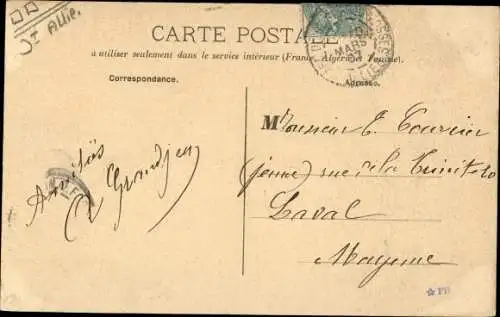 CARTE POSTALE
à utiliser seulement dans le service intérieur (France, Algérie et Tunisie).
Correspondance.
Adresse.
MARS
Monsieur E. Tourier
(jeune) rue de la Trinité 10
Laval
Mayenne
Amitiés
Grandjen